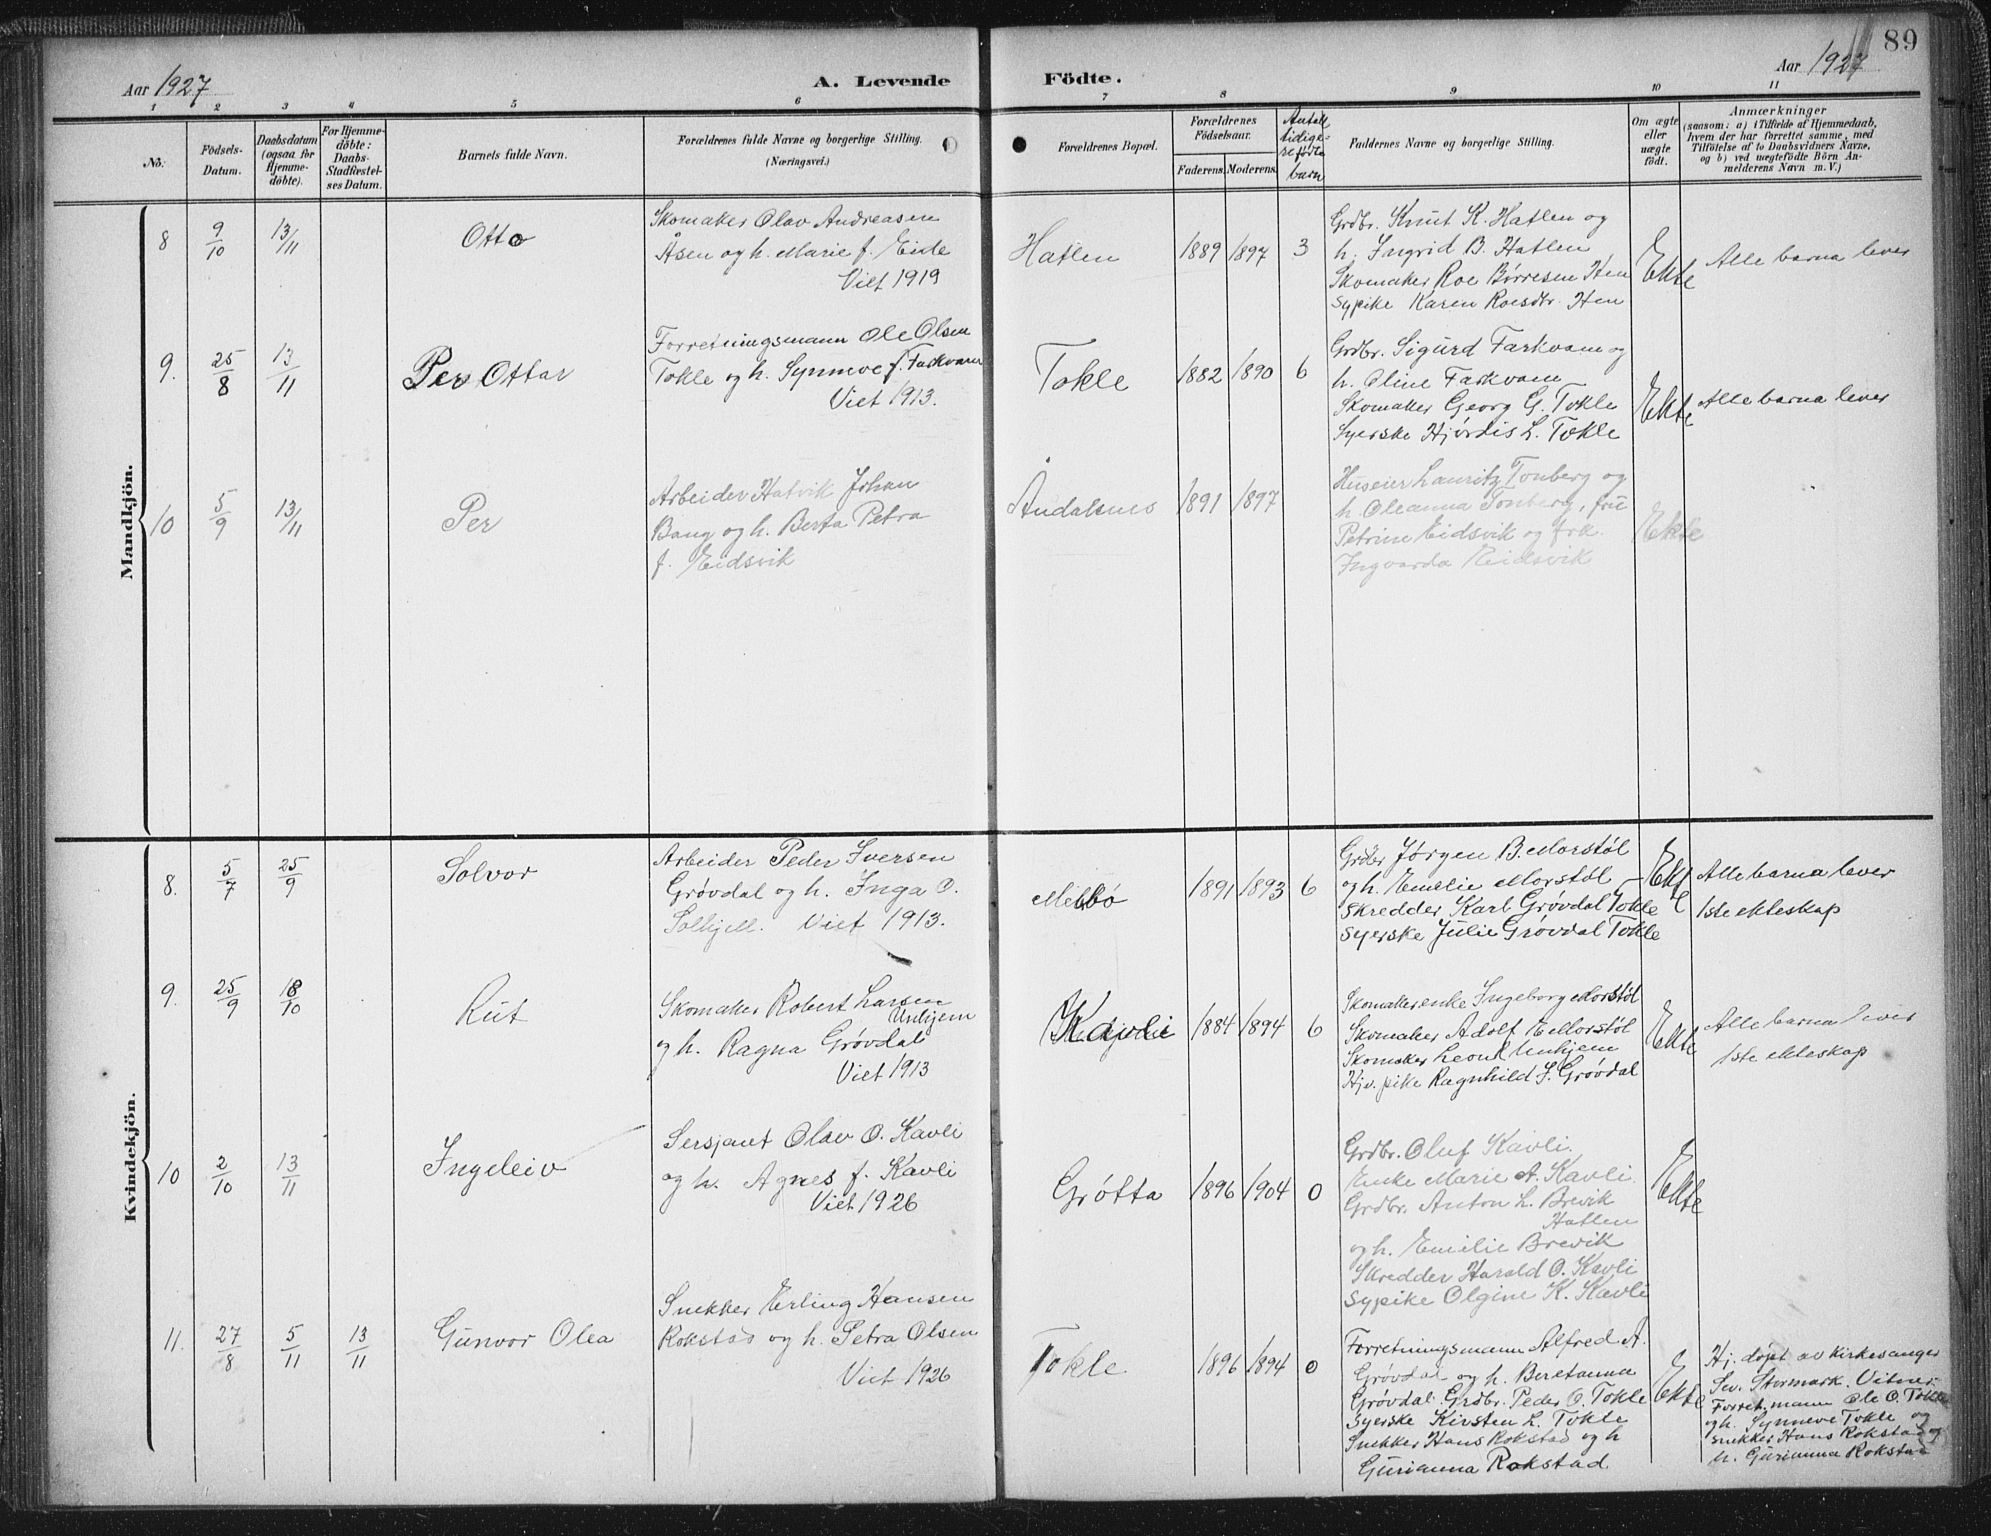 89
Aar 1927
A. Levende
Födte.
Aar 1927
1 2 3 4 5 6 7 8 9 10 11
No.
Födsels-
Datum.
Daabsdatum
(ogsaa for
Hjemme-
döbte).
For Hjemme-
döbte:
Daabs-
Stadfæstel-
ses Datum.
Barnets fulde Navn.
Forældrenes fulde Navne og borgerlige Stilling.
(Næringsvei.)
Forældrenes Bopæl.
Forældrenes
Födselsaar.
Faderens. Moderens.
Antall
tidlige-
re fødte
barn
Faddernes Navne og borgerlige Stilling.
Om ægte
eller
uægte
födt.
Anmærkninger
(saasom: a) i Tilfælde af Hjemmedaab,
hvem der har forrettet samme, med
Tilföielse af to Daabsvidners Navne,
og b) ved uægtefödte Börn An-
melderens Navn m. V.)
Mandkjön.
8
9/10
13/11
Otto
Skomaker Olav Andreasen
Åsen og h. Marie f. Eide
Viet 1919
Hatlen
1889 1897 3
Grdbr. Knut K. Hatlen og
h. Ingrid B. Hatlen
Skomaker Roe Børresen Hen
Sypike Karen Roesdtr. Hen
Ekte
Alle barna lever
9.
25/8
13/11
Per Ottar
Forretningsmann Ole Olsen
Tokle og h. Synnøve f. Farkvam
Viet 1913.
Tokle
1882 1890 6
Grdbr. Sigurd Farkvam og
h. Oline Farkvam
Skomaker Georg G. Tokle
Syerske Hjørdis L. Tokle
Ekte
Alle barna lever
10
5/9
13/11
Per
Arbeider Hatvik Johan
Bang og h. Berta Petra
f. Eidsvik
Åndalsnes
1891 1897
Huseier Lauritz Tonberg og
h. Oleanna Tonberg, fru
Petrine Eidsvik og frk.
Ingvarda Eidsvik
Ekte
Kvindekjön.
8.
5/7
25/9
Solvor
Arbeider Peder Iversen
Grøvdal og h. Inga O.
Solhjell. Viet 1913.
Melbø
1891 1893 6
Grdbr Jørgen B. Morstøl
og h. Emelie Morstøl
Skredder Karl Grøvdal Tokle
Syerske Julie Grøvdal Tokle
Ekte
Alle barna lever
1ste ekteskap
9.
25/9
18/10
Rut
Skomaker Robert Larsen
Unhjem
og h. Ragna Grøvdal
Viet 1913
Kavli
1884 1894 6
Skomakerenke Ingeborg Morstøl
Skomaker Adolf E Morstøl
Skomaker Leonl Unhjem
Hjv. pike Ragnhild I. Grøvdal
Ekte
Alle barna lever
1ste ekteskap
10
2/10
13/11
Ingeleiv
Sersjant Olav O. Kavli
og h. Agnes f. Kavli
Viet 1926
Grøtta
1896 1904 0
Grdbr. Oluf Kavli
Enke Marie A. Kavli.
Grdbr. Anton L. Brevik
Hatlen
og h. Emilie Brevik
Skredder Harald O. Kavli
Sypike Olgine K. Kavli
Ekte
11.
27/8
5/11
13/11
Gunvor Olea
Snekker Erling Hansen
Rokstad og h. Petra Olsen
Viet 1926
Tokle
1896 1894 0
Forretningsmann Alfred A.
Grøvdal og h. Beretanna
Grøvdal. Grdbr. Peder O. Tokle
Syerske Kirsten L. Tokle
Snekker Hans Rokstad og h
Gurianna Rokstad
Ekte
Hj. døpt av kirkesanger
Sev. Stormark. Vitner:
Forret.mann Ole O. Tokle
og h. Synneve Tokle og
snekker Hans Rokstad og
h. Gurianna Rokstad